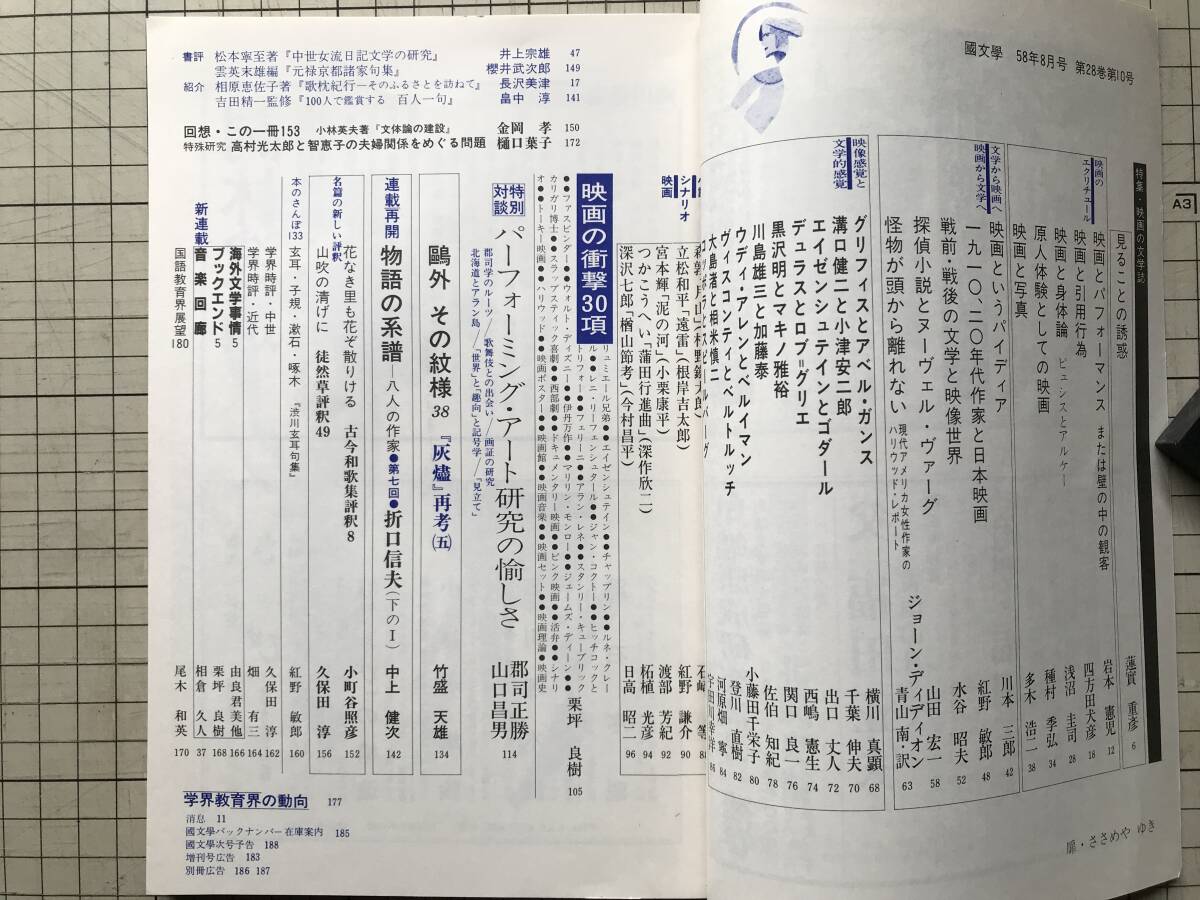 國文學 58年8月号 第28巻第10号
特集・映画の文学誌
見ることの誘惑 蓮實 重彦 6
映画のエクリチュール
映画とパフォーマンス または壁の中の観客 岩本 憲児 12
映画と引用行為 四方田犬彦 18
映画と身体論 ピュシスとアルケー 浅沼 圭司 28
原人体験としての映画 種村 季弘 34
映画と写真 多木 浩二 38
文学から映画へ 映画から文学へ
映画というパイディア 川本 三郎 42
一九一〇―二〇年代作家と日本映画 紅野 敏郎 48
戦前・戦後の文学と映像世界 水谷 昭夫 52
探偵小説とヌーヴェル・ヴァーグ 山田 宏一 58
怪物が頭から離れない 現代アメリカ女性作家のハリウッド・レポート ジョーン・ディディオン 青山 南・訳 63
映像感覚と文学的感覚
グリフィスとアベル・ガンス 横川 真顕 68
溝口健二と小津安二郎 千葉 伸夫 70
エイゼンシュテインとゴダール 出口 丈人 72
デュラスとロブ=グリエ 西嶋 憲生 74
黒沢明とマキノ雅裕 関口 良一 76
川島雄三と加藤泰 佐伯 知紀 78
ウディ・アレンとベルイマン 小藤田千栄子 80
ヴィスコンティとベルトルッチ 登川 直樹 82
大島渚と相米慎二 河原畑 寧 84
86
シナリオ
映画
88
立松和平『遠雷』(根岸吉太郎) 紅野 謙介 90
宮本輝『泥の河』(小栗康平) 渡部 芳紀 92
つかこうへい『蒲田行進曲』(深作欣二) 柘植 光彦 94
深沢七郎『楢山節考』(今村昌平) 日高 昭二 96
映画の衝撃30項 栗坪 良樹 105
リュミエール兄弟●エイゼンシュテイン●チャップリン●ルネ・クレール●レニ・リーフェンシュタール●ジャン・コクトー●ヒッチコックと
トリフォー●フェリーニ●アラン・レネ●スタンリー・キューブリック
●ファスビンダー●ウォルト・ディズニー●伊丹万作●マリリン・モンロー●ジェームズ・ディーン●
カリガリ博士●スラップスティック喜劇●西部劇●ドキュメンタリー映画●ピンク映画●活弁●シナリ
オ●トーキー映画●ハリウッド●映画ポスター●映画館●映画音楽●映画セット●映画理論●映画史
特別対談 パーフォーミング・アート研究の愉しさ 郡司正勝 山口昌男 114
郡司学のルーツ/歌舞伎との出会い/画証の研究
北海道とアラン島/「世界」と「趣向」と記号学/「見立て」
鷗外 その紋様 38 『灰燼』再考(五) 竹盛 天雄 134
連載再開 物語の系譜―八人の作家●第七回●折口信夫(下のI) 中上 健次 142
名篇の新しい評釈
花なき里も花ぞ散りける 古今和歌集評釈 8 小町谷照彦 152
山吹の清げに 徒然草評釈 49 久保田 淳 156
本のさんぽ133 玄耳・子規・漱石・啄木 『渋川玄耳句集』 紅野 敏郎 160
学界時評・中世 久保田 淳 162
学界時評・近代 畑 有三 164
海外文学事情 5 由良君美他 166
ブックエンド 5 栗坪 良樹 168
新連載 音楽回廊 相倉 久人 37
国語教育界展望180 尾木 和英 170
書評 松本寧至著『中世女流日記文学の研究』 井上宗雄 47
雲英末雄編『元禄京都諸家句集』 櫻井武次郎 149
紹介 相原恵佐子著『歌枕紀行―そのふるさとを訪ねて』 長沢美津 17
吉田精一監修『100人で鑑賞する 百人一句』 畠中 淳 141
回想・この一冊153 小林英夫著『文体論の建設』 金岡 孝 150
特殊研究 高村光太郎と智恵子の夫婦関係をめぐる問題 樋口葉子 172
学界教育界の動向 177
消息 11
國文學バックナンバー在庫案内 185
國文學次号予告 188
増刊号広告 183
別冊広告 186 187
扉・ささめや ゆき
A3